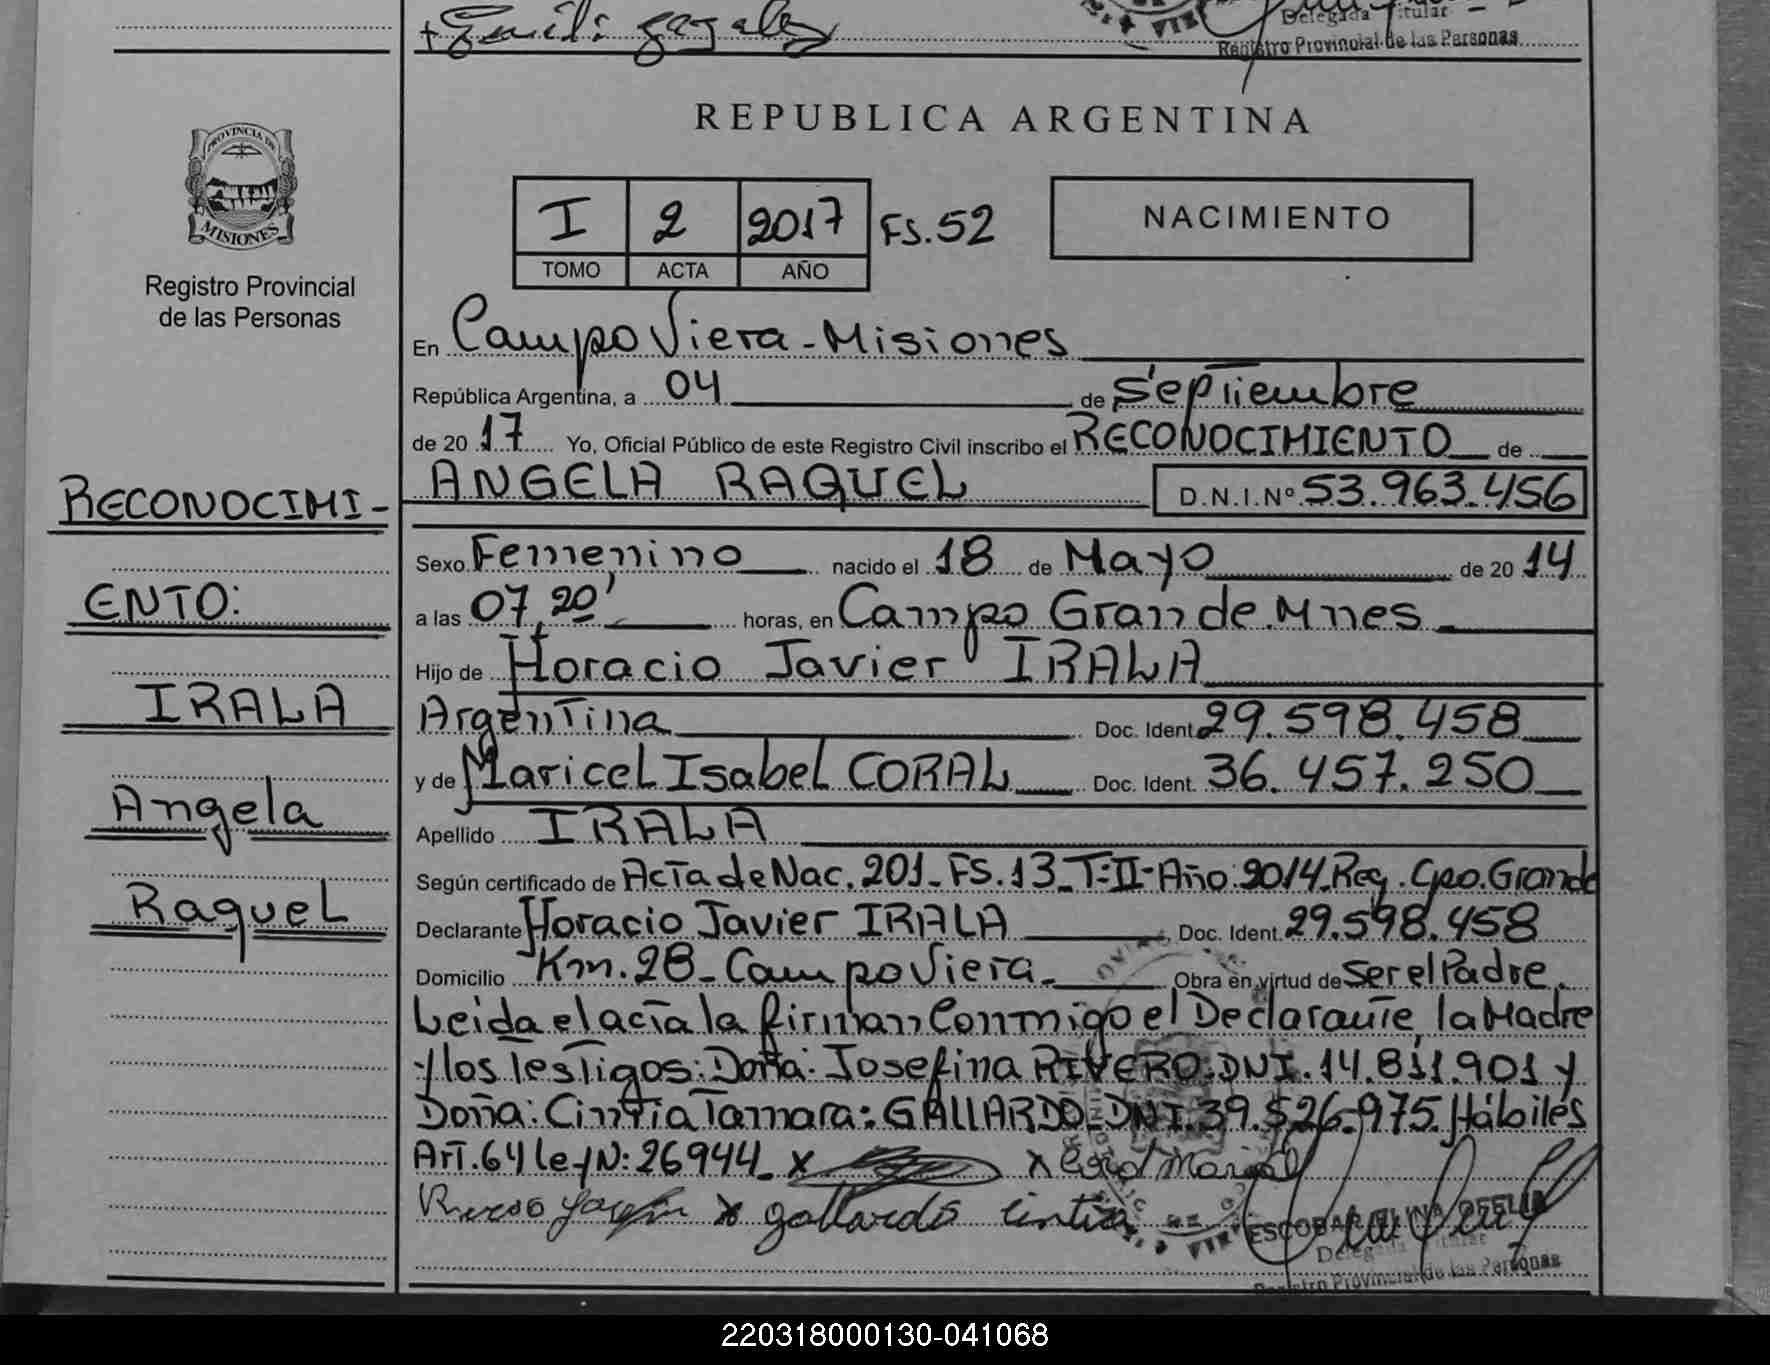 Delegada Titular
Registro Provincial de las Personas
PROVINCIA DE
MISIONES
Registro Provincial
de las Personas
RECONOCIMI-
ENTO:
IRALA
Angela
Raquel
REPUBLICA ARGENTINA
I 2 2017 FS.52
TOMO ACTA AÑO
NACIMIENTO
En Campo Viera - Misiones
República Argentina, a 04 de Septiembre
de 20 17 Yo, Oficial Público de este Registro Civil inscribo el RECONOCIMIENTO de
ANGELA RAQUEL D.N.I.Nº 53.963.456
Sexo Femenino nacido el 18 de Mayo de 20 14
a las 07,20' horas, en Campo Grande.Mnes
Hijo de Horacio Javier IRALA
Argentina Doc. Ident. 29.598.458
y de Maricel Isabel CORAL Doc. Ident. 36.457.250
Apellido IRALA
Según certificado de Acta de Nac. 201-FS.13-T:II-Año:2014.Reg.Cpo.Grande
Declarante Horacio Javier IRALA Doc. Ident. 29.598.458
Domicilio Km.28-Campo Viera. Obra en virtud de ser el Padre.
Leida el acta la firman conmigo el Declarante, la Madre
y los testigos: Doña: Josefina RIVERO:DNI.14.811.901 y
Doña: Cintia Tamara: GALLARDO-DNI.39.526.975.Hábiles
Art.64 ley N: 26944. x x
x gallardo cintia
ESCOBAR OFELIA
Delegada Titular
Registro Provincial de las Personas
220318000130-041068